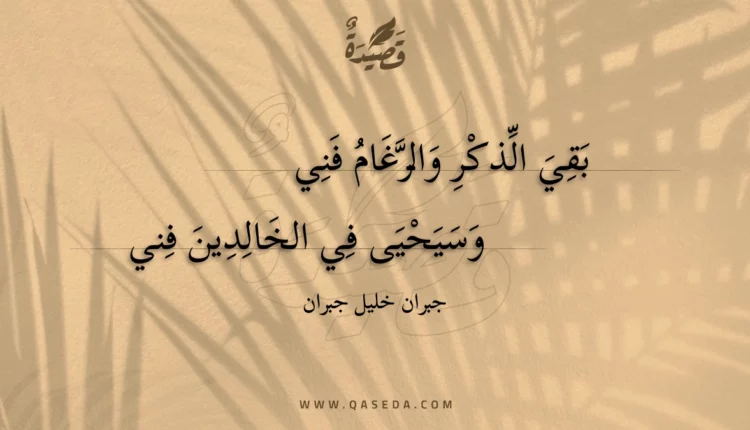 قَصِيْدَةٌ
بَقِيَ الِّذكْرِ وَالرَّغَامُ فَنِي
وَسَيَحْيَى فِي الخَالِدِينَ فِني
جبران خليل جبران
WWW.QASEDA.COM